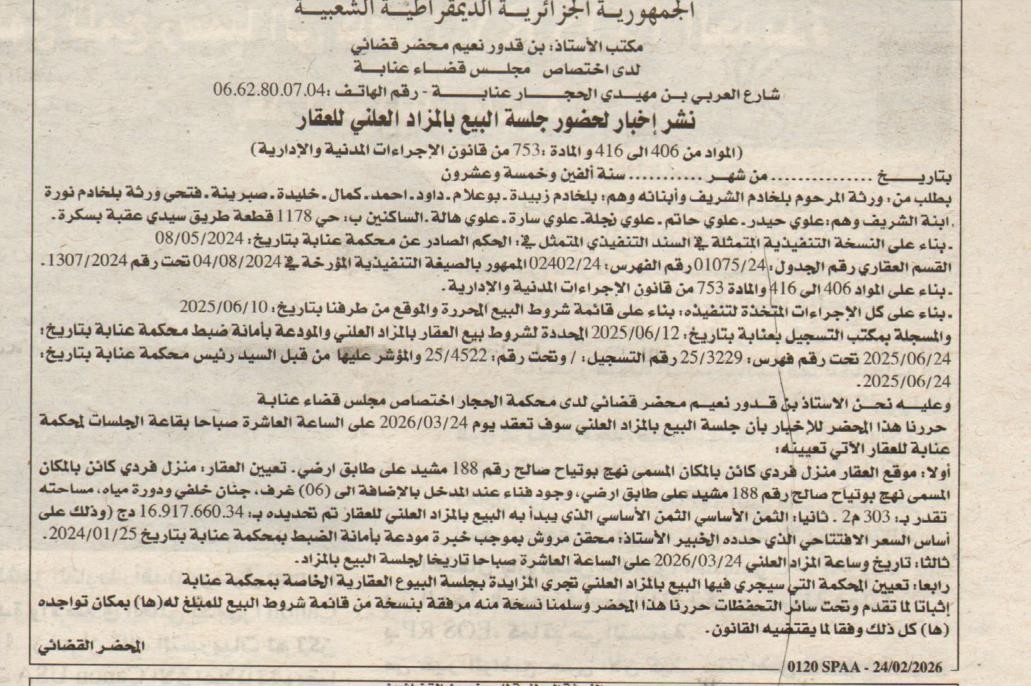 الجمهورية الجزائرية الديمقراطية الشعبية
مكتب الأستاذ: بن قدور نعيم محضر قضائي
لدى اختصاص مجلس قضاء عنابة
شارع العربي بن مهيدي الحجار عنابة - رقم الهاتف :06.62.80.07.04
نشر إخبار لحضور جلسة البيع بالمزاد العلني للعقار
(المواد من 406 الى 416 و المادة :753 من قانون الإجراءات المدنية والإدارية)
بتاريخ ............... من شهر ........... سنة ألفين وخمسة وعشرون
بطلب من: ورثة المرحوم بلخادم الشريف وأبنائه وهم: بلخادم زبيدة ـ بوعلام ـ داود ـ احمد ـ كمال ـ خليدة ـ صبرينة ـ فتحي ورثة بلخادم نورة
ابنة الشريف وهم: علوي حيدر ـ علوي حاتم ـ علوي نجلة ـ علوي سارة ـ علوي هالة ـ الساكنين ب: حي 1178 قطعة طريق سيدي عقبة بسكرة.
ـ بناء على النسخة التنفيذية المتمثلة في السند التنفيذي المتمثل في: الحكم الصادر عن محكمة عنابة بتاريخ: 08/05/2024
القسم العقاري رقم الجدول: 01075/24 رقم الفهرس: 02402/24 الممهور بالصيغة التنفيذية المؤرخة في 04/08/2024 تحت رقم 1307/2024.
ـ بناء على المواد 406 الى 416 والمادة 753 من قانون الإجراءات المدنية والإدارية.
ـ بناء على كل الإجراءات المتخذة لتنفيذه: بناء على قائمة شروط البيع المحررة والموقع من طرفنا بتاريخ: 2025/06/10
والمسجلة بمكتب التسجيل بعنابة بتاريخ: 2025/06/12 المحددة لشروط بيع العقار بالمزاد العلني والمودعة بأمانة ضبط محكمة عنابة بتاريخ:
2025/06/24 تحت رقم فهرس: 25/3229 رقم التسجيل: / وتحت رقم: 25/4522 والمؤشر عليها من قبل السيد رئيس محكمة عنابة بتاريخ:
2025/06/24.
وعليه نحن الاستاذ بن قدور نعيم محضر قضائي لدى محكمة الحجار اختصاص مجلس قضاء عنابة
حررنا هذا المحضر للإخبار بأن جلسة البيع بالمزاد العلني سوف تعقد يوم 2026/03/24 على الساعة العاشرة صباحا بقاعة الجلسات لمحكمة
عنابة للعقار الآتي تعيينه:
أولا: موقع العقار منزل فردي كائن بالمكان المسمى نهج بوتياح صالح رقم 188 مشيد على طابق ارضي. تعيين العقار: منزل فردي كائن بالمكان
المسمى نهج بوتياح صالح رقم 188 مشيد على طابق ارضي، وجود فناء عند المدخل بالإضافة الى (06) غرف، جنان خلفي ودورة مياه، مساحته
تقدر بـ: 303 م2 . ثانيا: الثمن الأساسي الثمن الأساسي الذي يبدأ به البيع بالمزاد العلني للعقار تم تحديده بـ: 16.917.660.34 دج (وذلك على
أساس السعر الافتتاحي الذي حدده الخبير الأستاذ: محقن مروش بموجب خبرة مودعة بأمانة الضبط بمحكمة عنابة بتاريخ 2024/01/25.
ثالثا: تاريخ وساعة المزاد العلني 2026/03/24 على الساعة العاشرة صباحا تاريخا لجلسة البيع بالمزاد.
رابعا: تعيين المحكمة التي سيجري فيها البيع بالمزاد العلني تجري المزايدة بجلسة البيوع العقارية الخاصة بمحكمة عنابة
إثباتا لما تقدم وتحت سائر التحفظات حررنا هذا المحضر وسلمنا نسخة منه مرفقة بنسخة من قائمة شروط البيع للمبلغ له(ها) بمكان تواجده
(ها) كل ذلك وفقا لما يقتضيه القانون.
المحضر القضائي
0120 SPAA - 24/02/2026